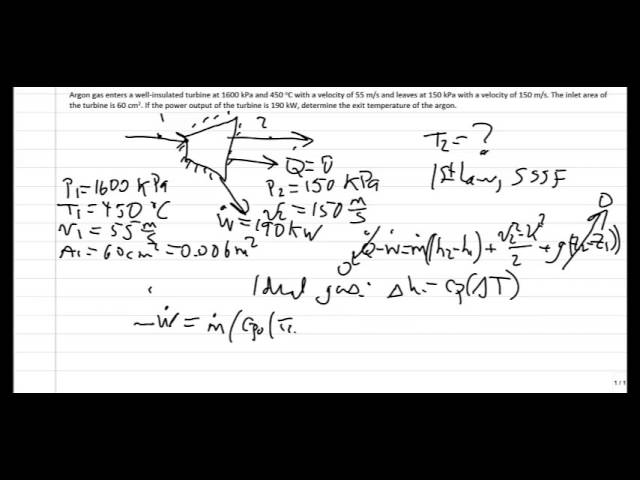 Argon gas enters a well-insulated turbine at 1600 kPa and 450 °C with a velocity of 55 m/s and leaves at 150 kPa with a velocity of 150 m/s. The inlet area of
the turbine is 60 cm². If the power output of the turbine is 190 kW, determine the exit temperature of the argon.
1
2
T₂ = ?
Q̇ = 0
1st Law, SSSF
P₁ = 1600 kPa
P₂ = 150 kPa
T₁ = 450 °C
V₂ = 150 m/s
V₁ = 55 m/s
Ẇ = 190 kW
A₁ = 60 cm² = 0.006 m²
0
Q̇ - Ẇ = ṁ((h₂-h₁) + (V₂²-V₁²)/2 + g(z₂-z₁))
0
Ideal gas: Δh = Cp(ΔT)
-Ẇ = ṁ(Cp₀(T₂
1 / 1